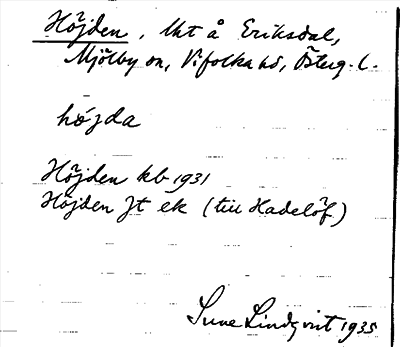 Höjden, lht å Eriksdal,
Mjölby sn, Vifolka hd, Österg. l.
höjda
Höjden kb 1931
Höjden Jt ek (till Hadelöf)
Sune Lindqvist 1935